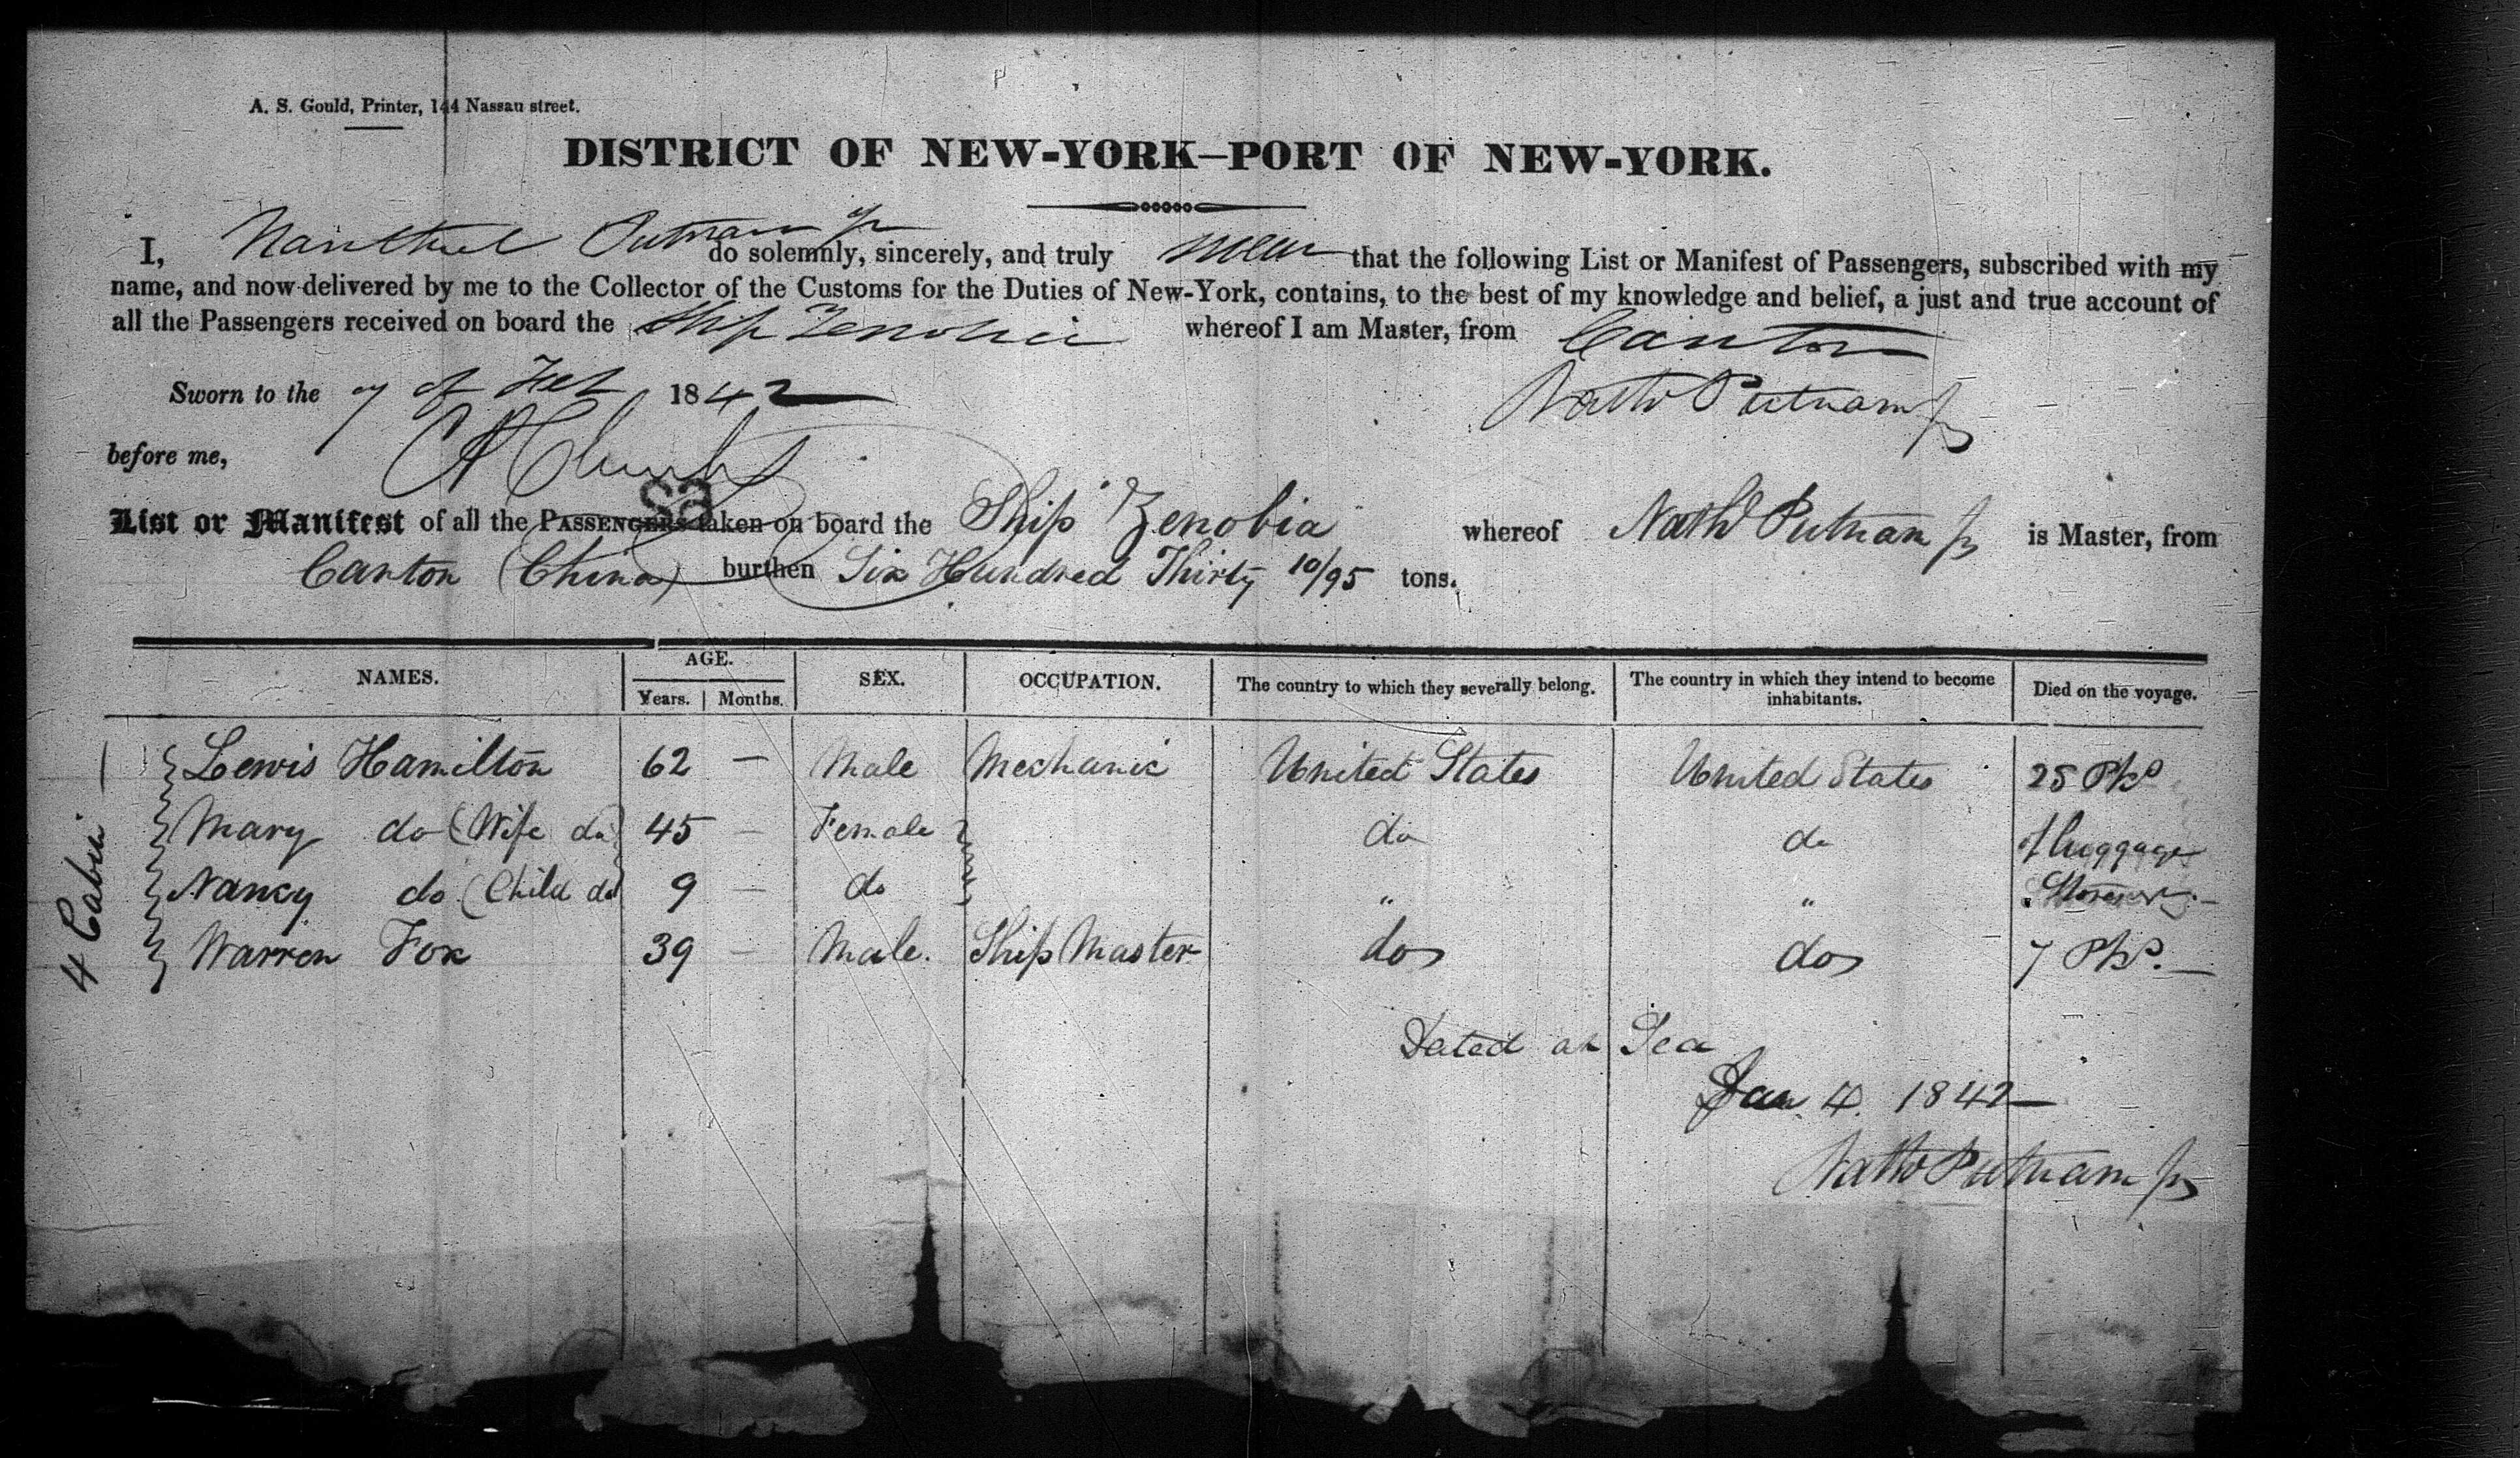 A. S. Gould, Printer, 144 Nassau street.
DISTRICT OF NEW-YORK—PORT OF NEW-YORK.
I, Nanthel Putnam Jr do solemnly, sincerely, and truly swear that the following List or Manifest of Passengers, subscribed with my
name, and now delivered by me to the Collector of the Customs for the Duties of New-York, contains, to the best of my knowledge and belief, a just and true account of
all the Passengers received on board the Ship Zenobia whereof I am Master, from Canton
Sworn to the 7 of Feb 1842
Nathl Putnam Jr
before me,
sa
List or Manifest of all the PASSENGERS taken on board the Ship Zenobia whereof Nathl Putnam Jr is Master, from
Canton (China) burthen Six Hundred Thirty 10/95 tons.
NAMES. AGE. SEX. OCCUPATION. The country to which they severally belong. The country in which they intend to become inhabitants. Died on the voyage.
Years. Months.
Lewis Hamilton 62 — Male Mechanic United States United States 25 Pks
Mary do (Wife do) 45 — Female do do of luggage
Nancy do (Child do) 9 — do " "
Warren Fox 39 — Male. Ship Master do do 7 Pks. —
4 Cabin —
Dated at Sea
Jan. 4. 1842
Nathl Putnam Jr